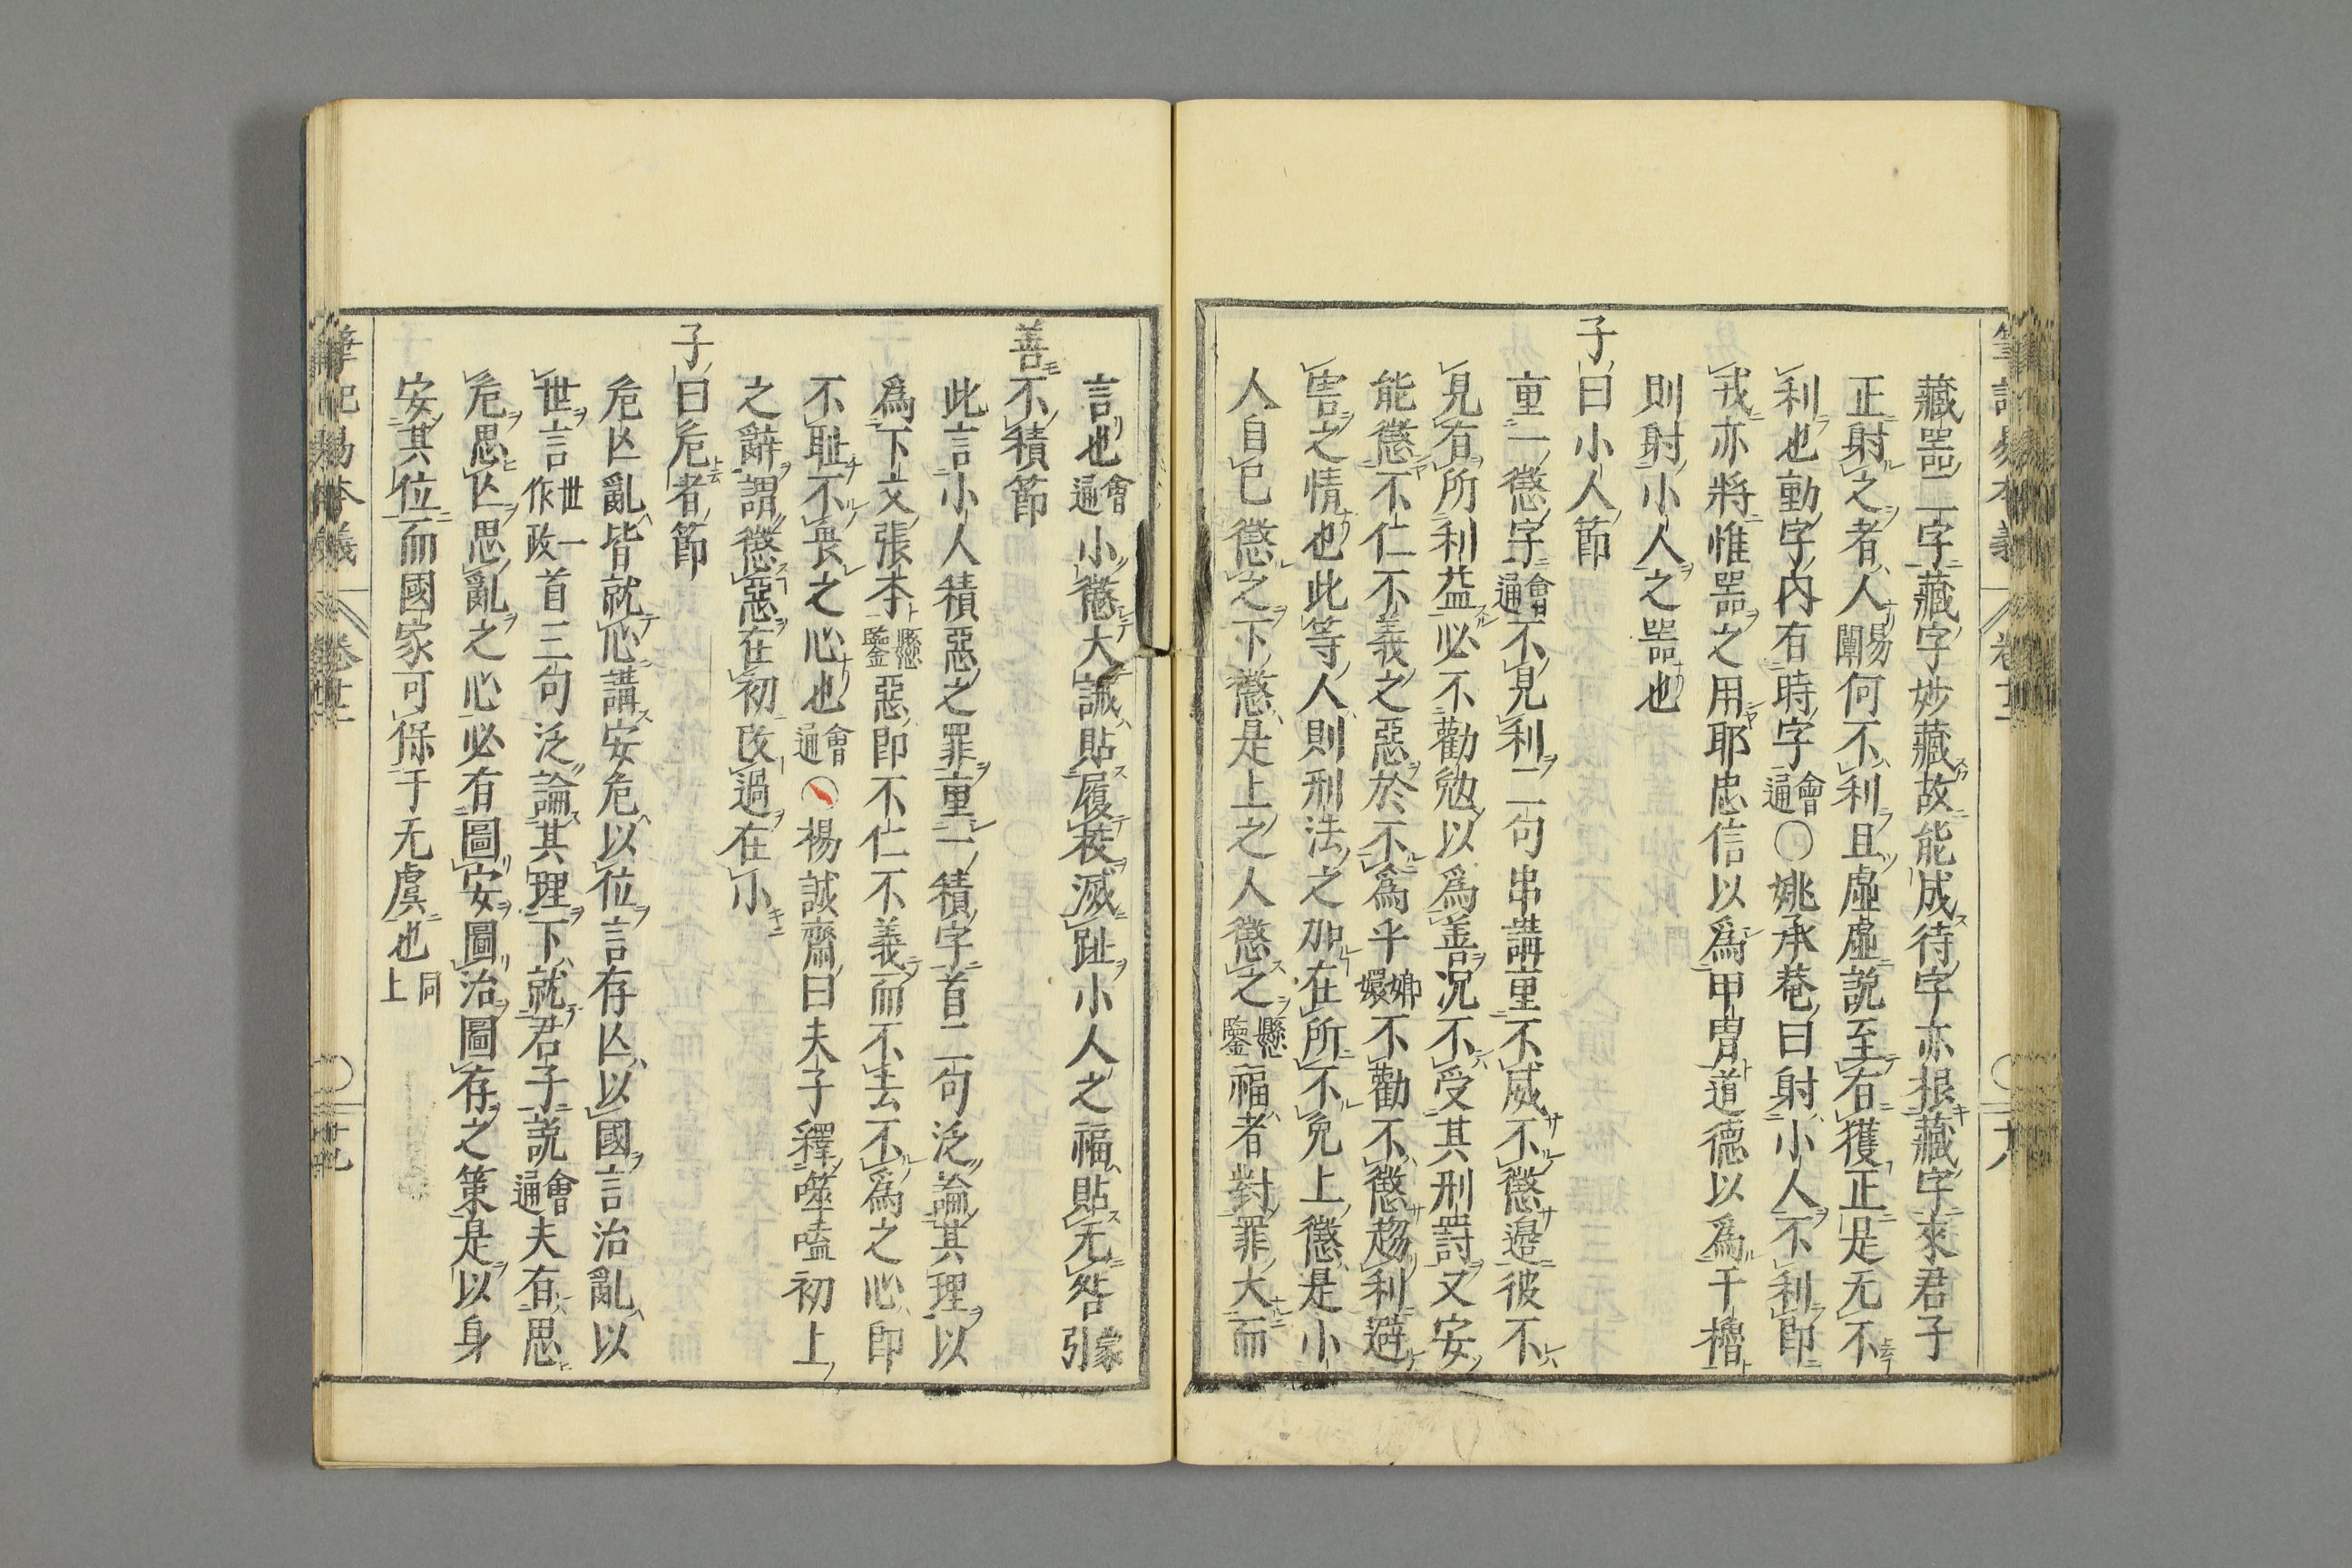 藏器二字藏字妙藏故能成待字亦根藏字來君子
正射之者人易闡何不利且虛虛説至右獲正是无不
利也動字內有時字會通〇姚承菴曰射小人不利即
戎亦將惟器之用耶忠信以爲甲冑道德以爲干櫓
則射小人之器也
子曰小人節
重一懲字會通不見利二句串講重不威不懲邉彼不
見有所利益必不勸勉以爲善况不受其刑罸又安
能懲不仁不義之惡於不爲乎嫏嬛不勸不懲趨利避
害之情也此等人則刑法之加在所不免上懲是小
人自已懲之下懲是上之人懲之懸鑒福者對罪大而
言也會通小懲大誡貼履校滅趾小人之福貼无咎蒙引
善不積節
此言小人積惡之罪重一積字首二句泛論其理以
爲下文張本懸鑒惡即不仁不義而不去不爲之心即
不耻不畏之心也會通〇楊誠齋曰夫子釋噬嗑初上
之辭謂懲惡在初改過在小
子曰危者節
危亾亂皆就心講安危以位言存亾以國言治亂以
世言世一作政首三句泛論其理下就君子説會通夫有思
危思亾思亂之心必有圖安圖治圖存之策是以身
安其位而國家可保于无虞也同上
筆記易本義